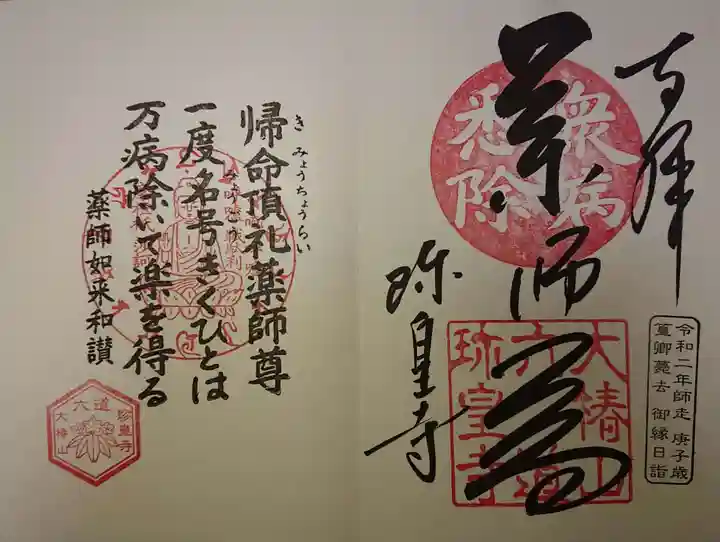 奉拝
衆病
悉除
薬師尊
大椿山
六道
珍皇寺
珎皇寺
令和二年師走 庚子歳
篁卿薨去 御縁日詣
帰命頂礼薬師尊
きみょうちょうらい
一度名号きくひとは
みょうごう
万病除いて楽を得る
薬師如来和讃
六道
珍皇寺
大椿山